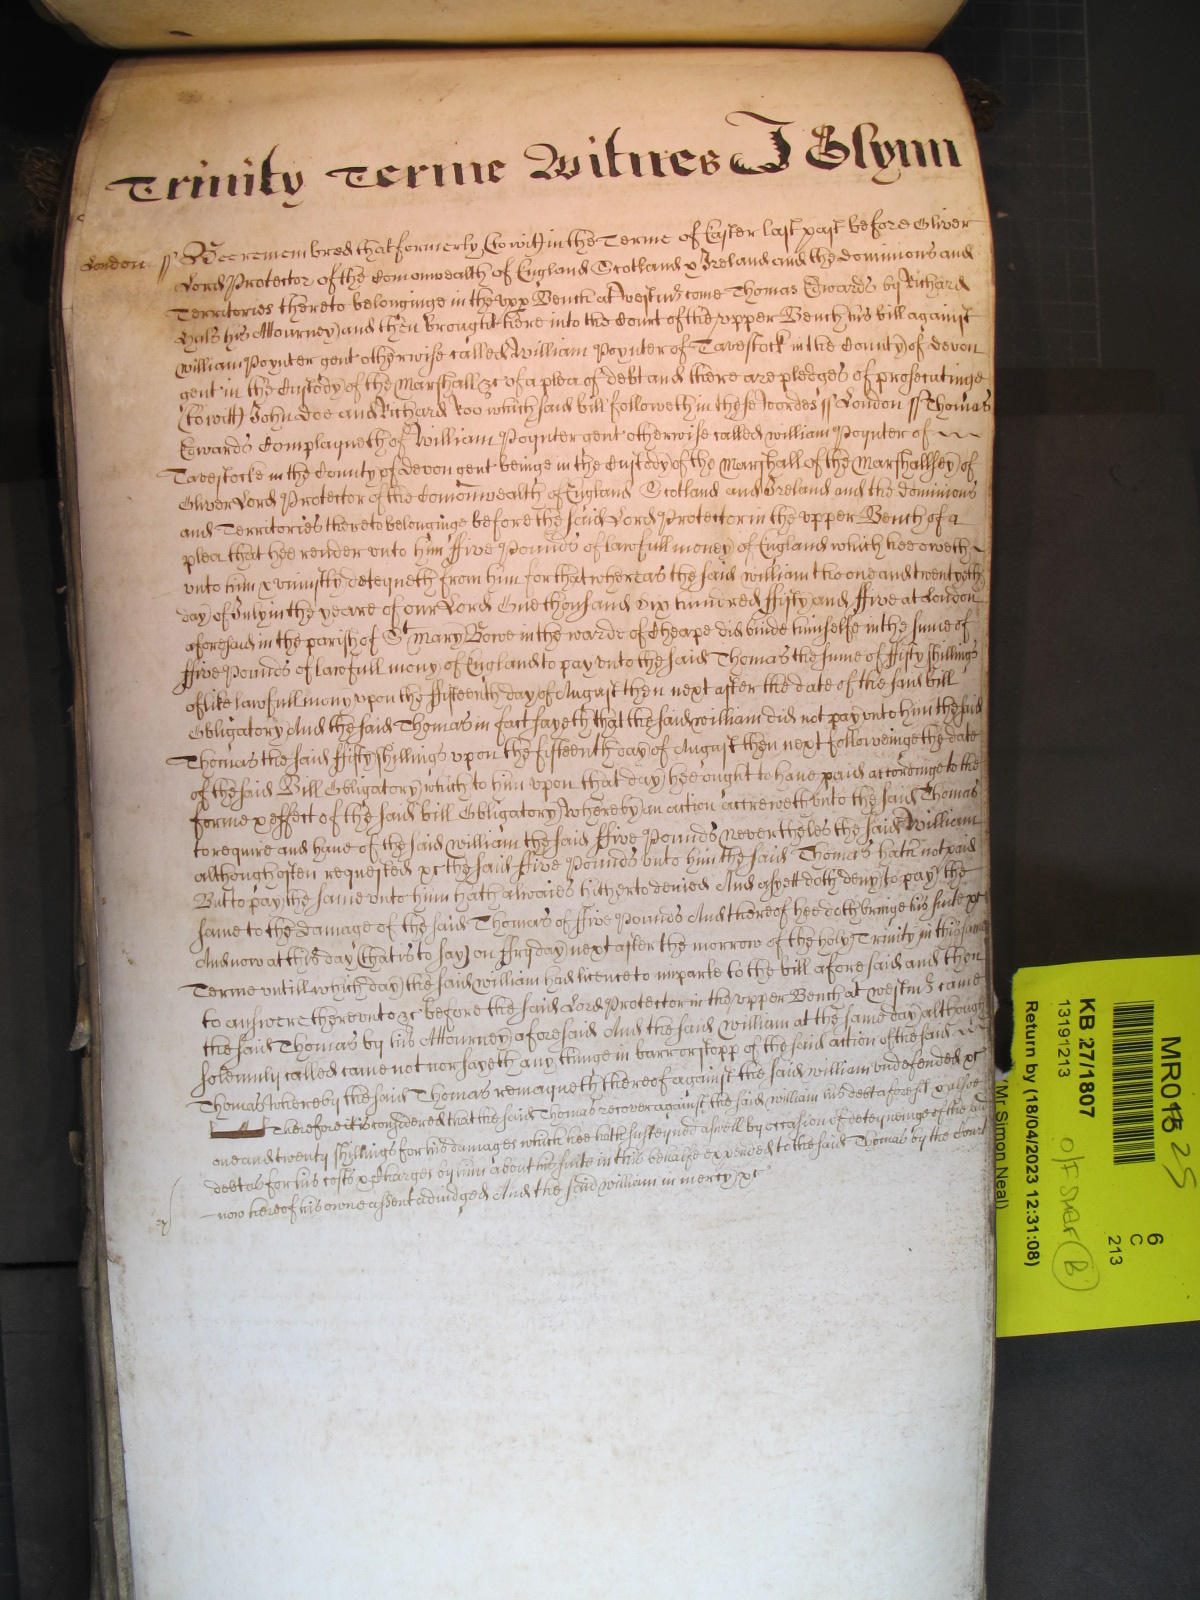 Trinity Terme Witnes J Glynn
London ss Bee remembred that formerly (to witt) in the Terme of Easter last past before Oliver
Lord Protector of the Comonwealth of England Scotland & Ireland and the dominions and
Territories thereto belonginge in the vpp Bench at Westmr come Thomas Edwards by Richard
his Attourney and then brought here into the Court of the vpper Bench his bill against
William Poynter gent otherwise called William Poynter of Tavestock in the County of devon
gent in the Custody of the Marshall &c of a plea of debt and there are pledges of prosecutinge
(to witt) John Doe and Richard Roo which said bill followeth in these wordes ss London ss Thomas
Edwards Complayneth of William Poynter gent otherwise called William Poynter of
Tavestocke in the County of devon gent beinge in the Custody of the Marshall of the Marshallsey of
Oliver Lord Protector of the Comonwealth of England Scotland and Ireland and the dominions
and Territories thereto belonginge before the said Lord Protector in the vpper Bench of a
plea that hee render vnto him ffive Pounds of lawfull money of England which hee oweth
vnto him & vniustly deteyneth from him for that whereas the said william the one and twentyeth
day of July in the yeare of our Lord One thousand six hundred ffifty and ffive at London
aforesaid in the parish of St Mary Bowe in the warde of Cheape did binde himselfe in the sume of
ffive Pounds of lawfull mony of England to pay vnto the said Thomas the sume of ffifty shillings
of like lawfull mony vpon the ffifteenth day of August then next after the date of the said bill
Obligatory And the said Thomas in fact sayeth that the said william did not pay vnto him the said
Thomas the said ffifty shillings vpon the fifteenth day of August then next followeinge the date
of the said Bill Obligatory which to him vpon that day hee ought to haue paid accordinge to the
forme & effect of the said bill Obligatory whereby an action accreweth vnto the said Thomas
to require and haue of the said william the said ffive Pounds Neverthelés the said William
although often requested &c the said ffive Pounds vnto him the said Thomas hath not paid
But to pay the same vnto him hath alwaies hitherto denied And as yett doth deny to pay the
same to the damage of the said Thomas of ffive Pounds And thereof hee doth bringe his suite &c
And now at this day (that is to say) on ffryday next after the morrow of the holy Trinity in this same
Terme vntill which day the said william had licence to imparle to the bill aforesaid and then
to answere therevnto &c before the said Lord Protector in the vpper Bench at Westmr came
the said Thomas by his Attourney aforesaid And the said william at the same day although
solemnly called came not nor sayeth any thinge in barr or stopp of the said action of the said
Thomas whereby the said Thomas remayneth thereof against the said william vndefended &c
Therefore it is considered that the said Thomas recover against the said william his debt aforesd & alsoe
one and twenty shillings for his damages which hee hath susteyned aswell by occasion of deteyninge of the said
debt as for his costs & charges by him about his suite in this behalfe expended to the said Thomas by the Court
now here of his owne assent adiudged And the said william in mercy &c
MR018 25
KB 27/1807
13191213
o/f sher B
6
C
213
Return by (18/04/2023 12:31:08)
(Mr Simon Neal)